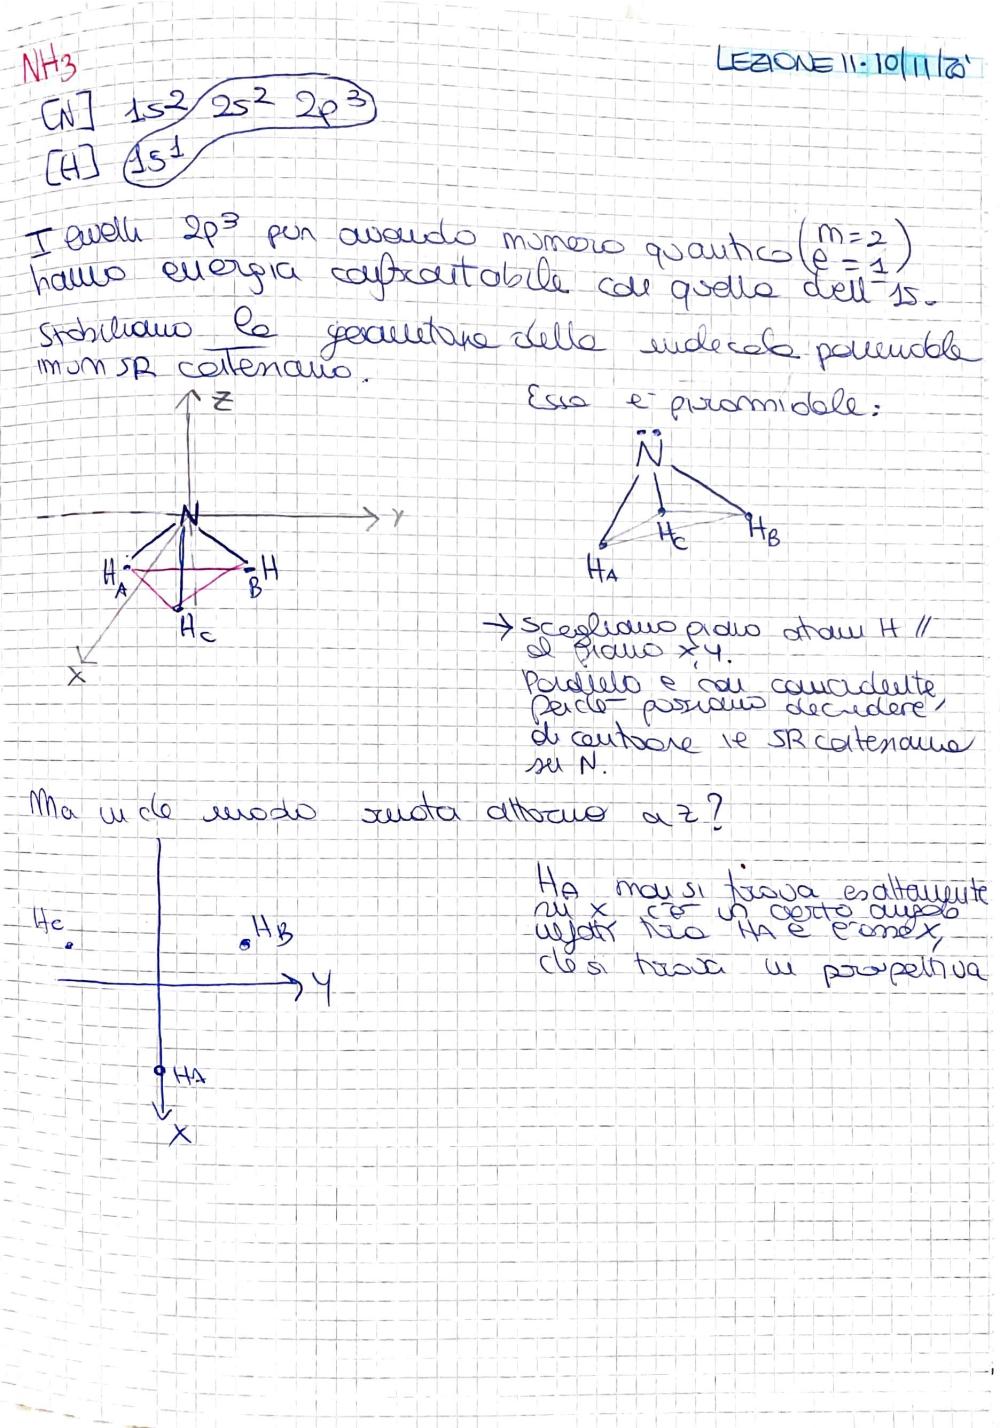 NH3
LEZIONE 11. 10/11/20
[N] 1s² 2s² 2p³
[H] 1s¹
I livelli 2p³ pur avendo numero quantico (n=2
l=1)
hanno energia confrontabile con quella dell'1s.
Stabiliamo la geometria della molecola ponendola
in un SR cartesiano.
Essa è piramidale:
Z
Y
X
N
HA
H
B
HC
N
HA
HC
HB
→ scegliamo piano atomi H //
al piano x,y.
Parallelo e non coincidente
perché possiamo decidere
di centrare il SR cartesiano
su N.
Ma in che modo ruota attorno a z?
HC
HB
Y
HA
X
HA non si trova esaltamente
su x c'è un certo angolo
infatti tra HA e l'asse x,
che si trova in prospettiva